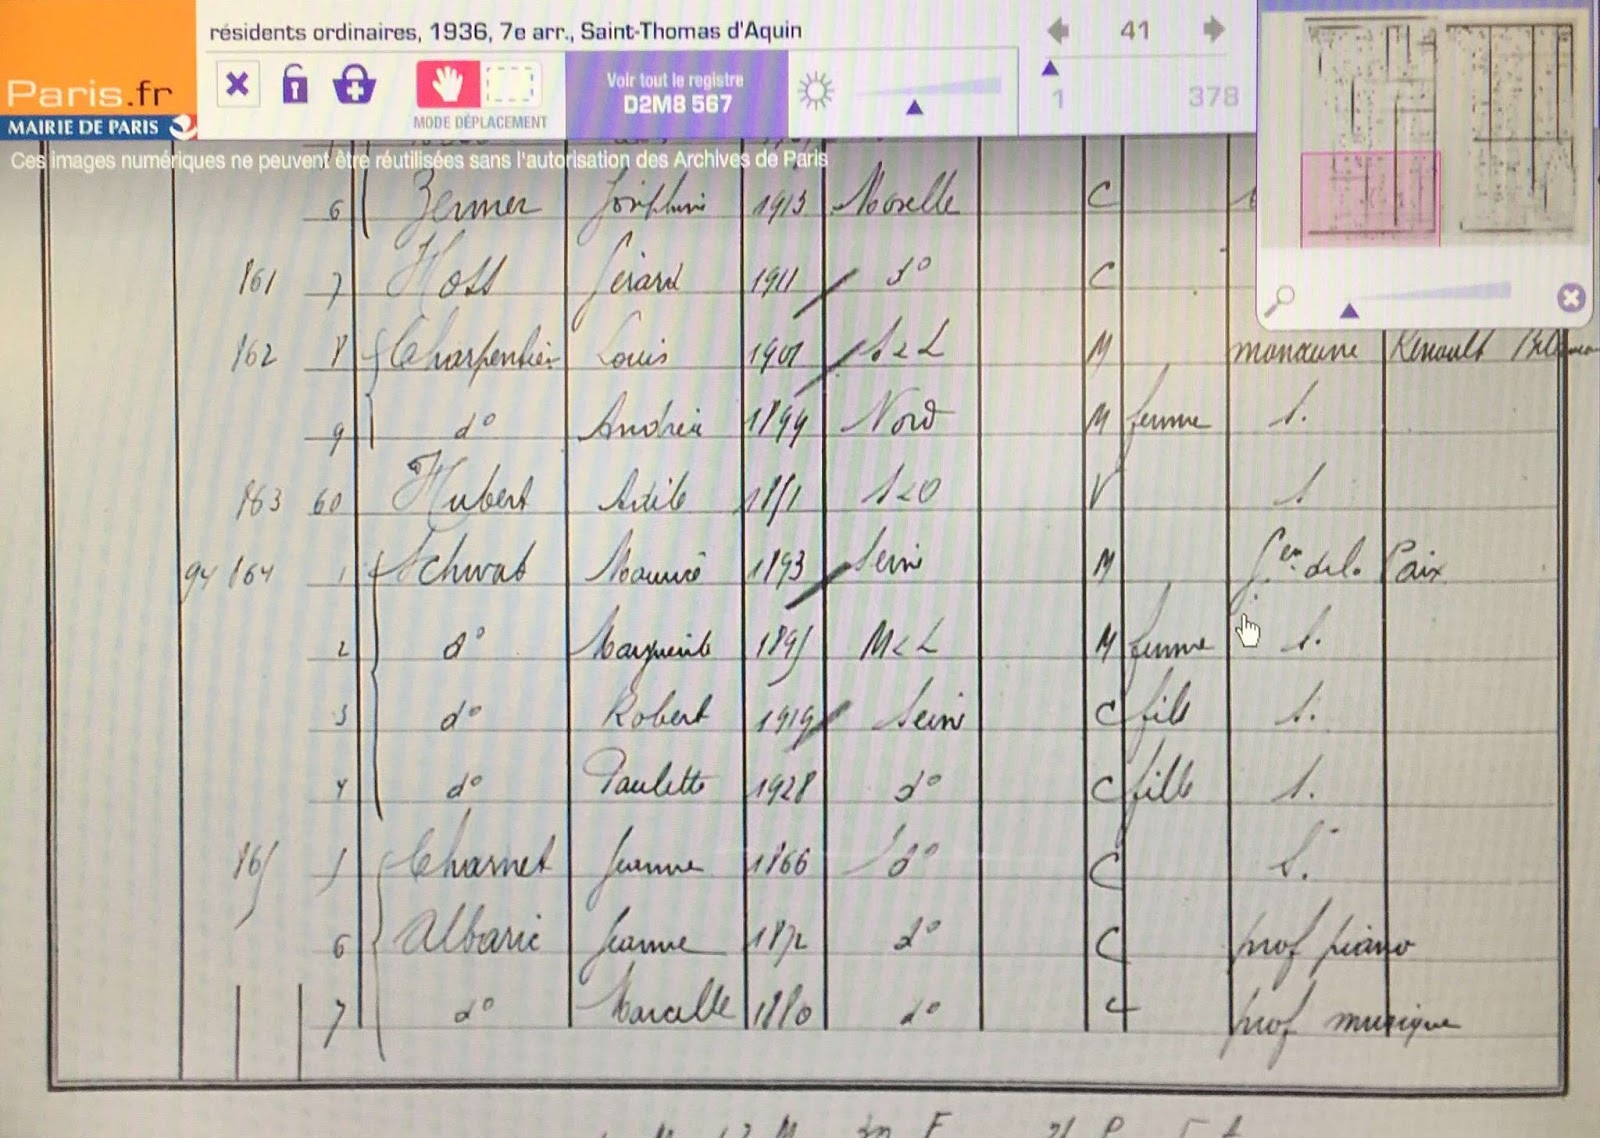 résidents ordinaires, 1936, 7e arr., Saint-Thomas d'Aquin
41
Paris.fr
MAIRIE DE PARIS
MODE DÉPLACEMENT
Voir tout le registre
D2M8 567
1
378
Ces images numériques ne peuvent être réutilisées sans l'autorisation des Archives de Paris
6 Zermer 1913 Moselle C
161 7 Gérard 1911 d° C
162 8 Charpentier Louis 1901 S&L M manœuvre Renault
9 d° Andréa 1899 Nord M femme S.
163 60 Hubert 1851 S&O V S
94 164 1 Schwab Maurice 1893 Seine M de la Paix
2 d° Marguerite 1895 M&L M femme S.
3 d° Robert 1919 Seine C fils S.
4 d° Paulette 1928 d° C fille S.
165 5 Charnet Jeanne 1866 d° C S.
6 Albaric Jeanne 1872 d° C prof piano
7 d° Marcelle 1880 d° C prof musique